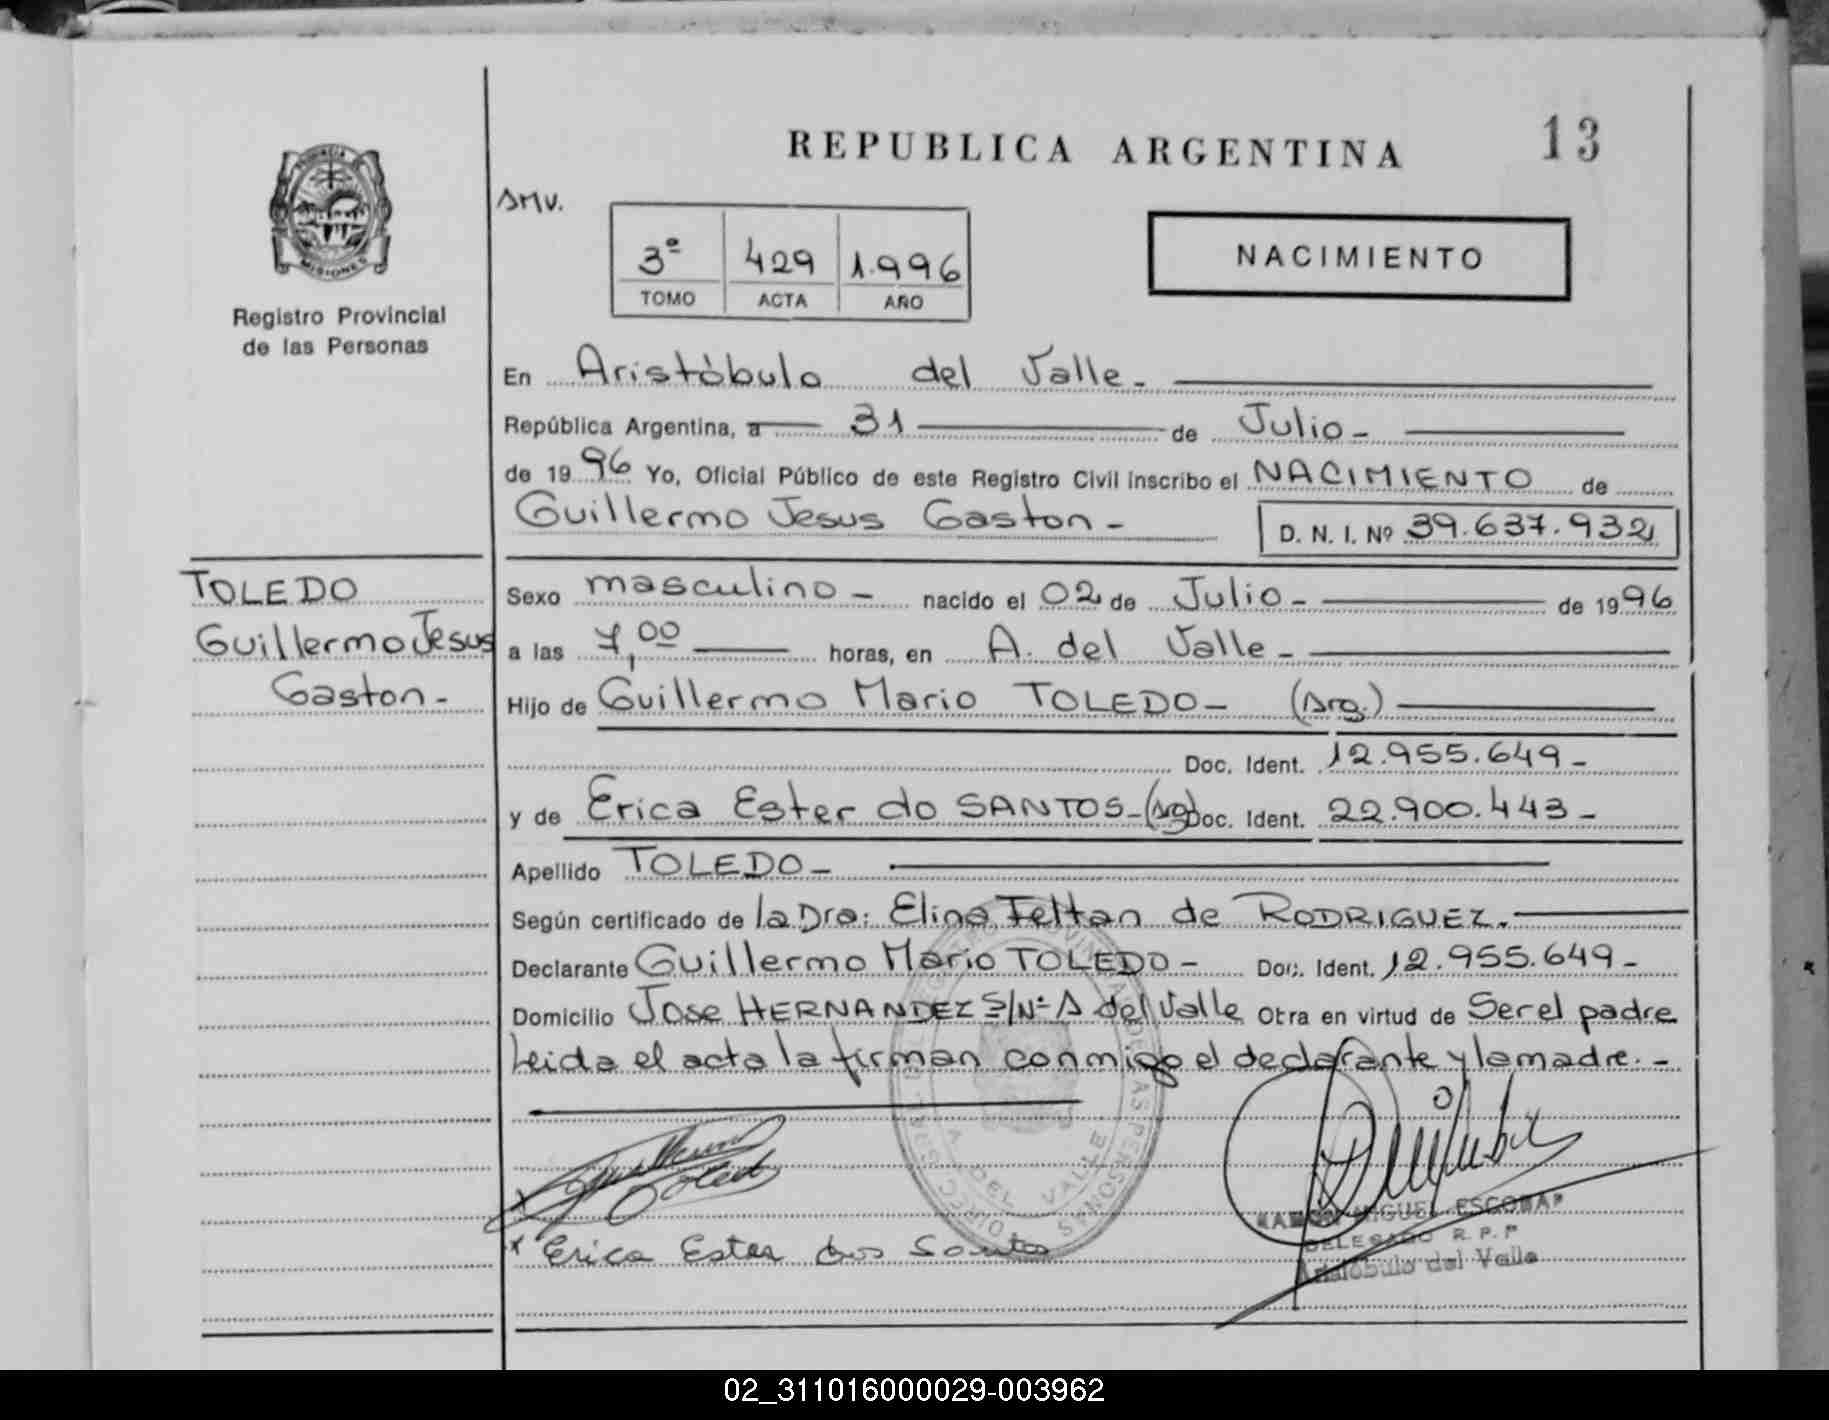 REPUBLICA ARGENTINA
13
PROVINCIA DE
MISIONES
Registro Provincial
de las Personas
AMV.
3º 429 1.996
TOMO ACTA AÑO
NACIMIENTO
En Aristóbulo del Valle.-
República Argentina, a 31 de Julio-
de 1996 Yo, Oficial Público de este Registro Civil inscribo el NACIMIENTO de
Guillermo Jesus Gaston-
D. N. I. Nº 39.637.932
TOLEDO
Guillermo Jesus
Gaston-
Sexo masculino- nacido el 02 de Julio- de 1996
a las 7,00 horas, en A. del Valle-
Hijo de Guillermo Mario TOLEDO- (Arg.)
Doc. Ident. 12.955.649-
y de Erica Ester do SANTOS-(Arg) Doc. Ident. 22.900.443-
Apellido TOLEDO-
Según certificado de la Dra: Elina Feltan de RODRIGUEZ.
Declarante Guillermo Mario TOLEDO- Doc. Ident. 12.955.649-
Domicilio Jose HERNANDEZ S/Nº A del Valle Otra en virtud de Ser el padre
Leida el acta la firman conmigo el declarante y la madre.-
Guillermo
Toledo
x Erica Ester dos Santos
A. DEL VALLE
RAMON MIGUEL ESCOBAR
DELEGADO R. P. P
Aristóbulo del Valle
02_311016000029-003962